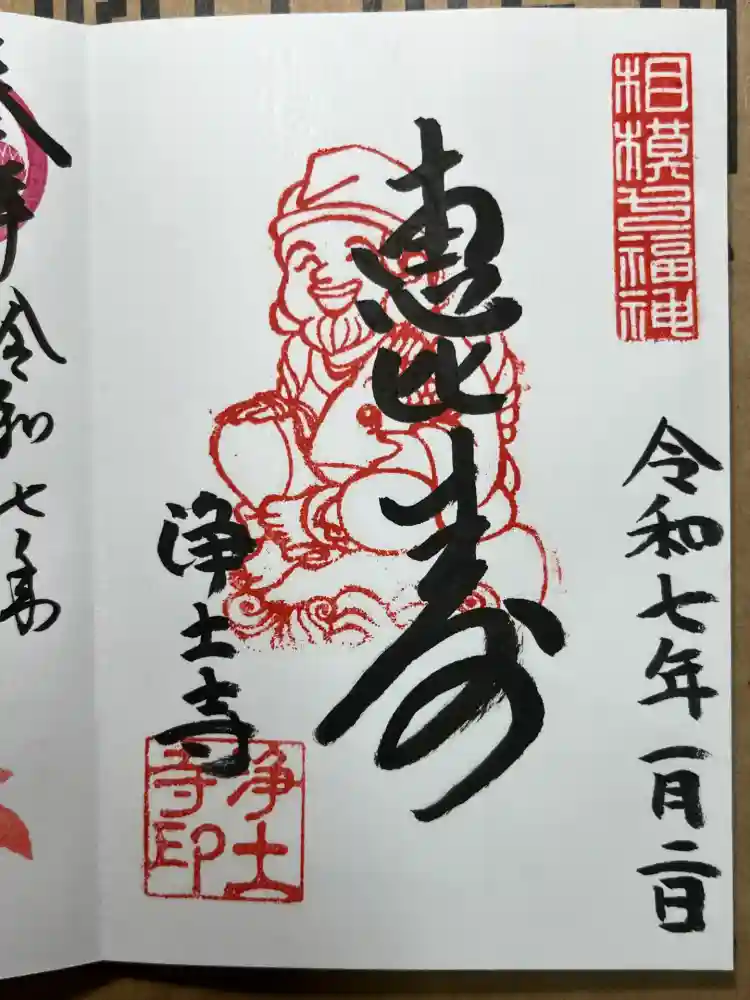 相模七福神
令和七年一月二日
恵比寿
浄土寺
浄土寺印
拝
令和七年